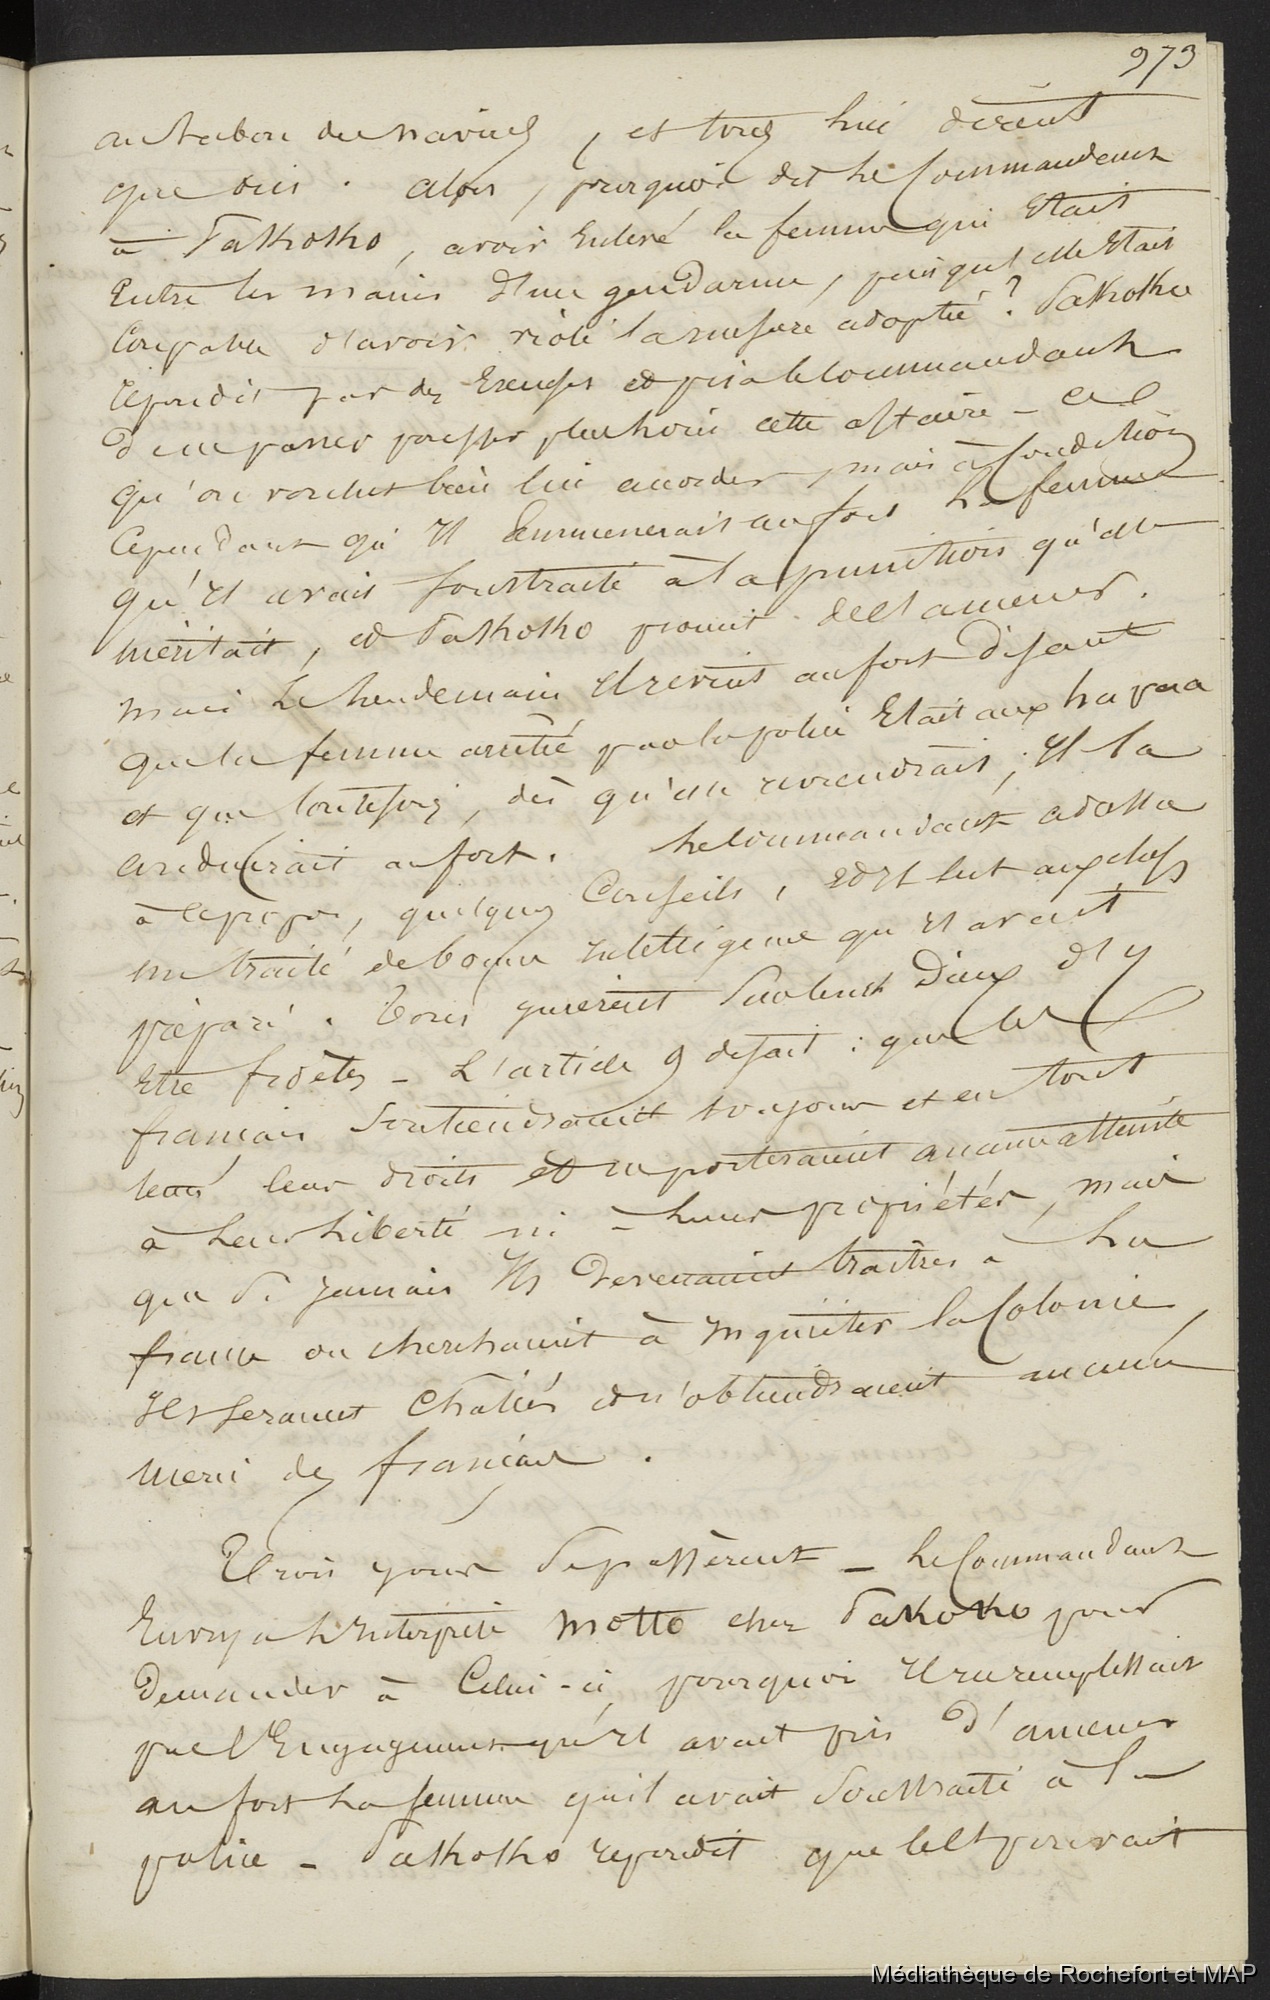 973
au tabou des navires, et tous lui dirent
que oui. alors, pourquoi dit le Commandant
à Pakhokho, avoir Enlevé la femme qui Etait
Entre les mains d'un gendarme, puisqu'elle Etait
Coupable d'avoir violé la mesure adoptée ? Pakhokho
repondit par des Excuses et pria le Commandant
de ne pas pousser plus loin cette affaire - ce
qu'on voulut bien lui accorder, mais à Condition
Cependant qu'Il Emmenerait au fort la femme
qu'Il avait soustraite à la punition qu'elle
méritait, et Pakhokho promit de l'amener.
mais le lendemain Il revint au fort disant
que la femme arrêtée par la police Etait aux hapaa
et que toutefois, dès qu'elle reviendrait, Il la
conduirait au fort. le Commandant adressa
à ce propos, quelques Conseils, et Il lut aux chefs
un traité de bonne Intelligence qu'Il avait
préparé. Tous jurèrent sur leurs Dieux d'y
Etre fidèles - L'article 9 disait : que les
français soutiendraient toujours et en tout
tems leurs droits et ne porteraient aucune atteinte
à leur liberté ni à leurs propriétés, mais
que si jamais Ils devenaient traîtres à la
france ou cherchaient à Inquiéter la Colonie,
Ils seraient Châtiés et n'obtiendraient aucune
merci des français.
Trois jours se passèrent - le Commandant
Envoya l'Interprète Motto chez Pakoko pour
Demander à Celui-ci pourquoi Il ne remplissait
pas l'Engagement qu'Il avait pris d'amener
au fort la femme qu'il avait soustraite à la
police - Pakhokho repondit que s'il pouvait
Médiathèque de Rochefort et MAP